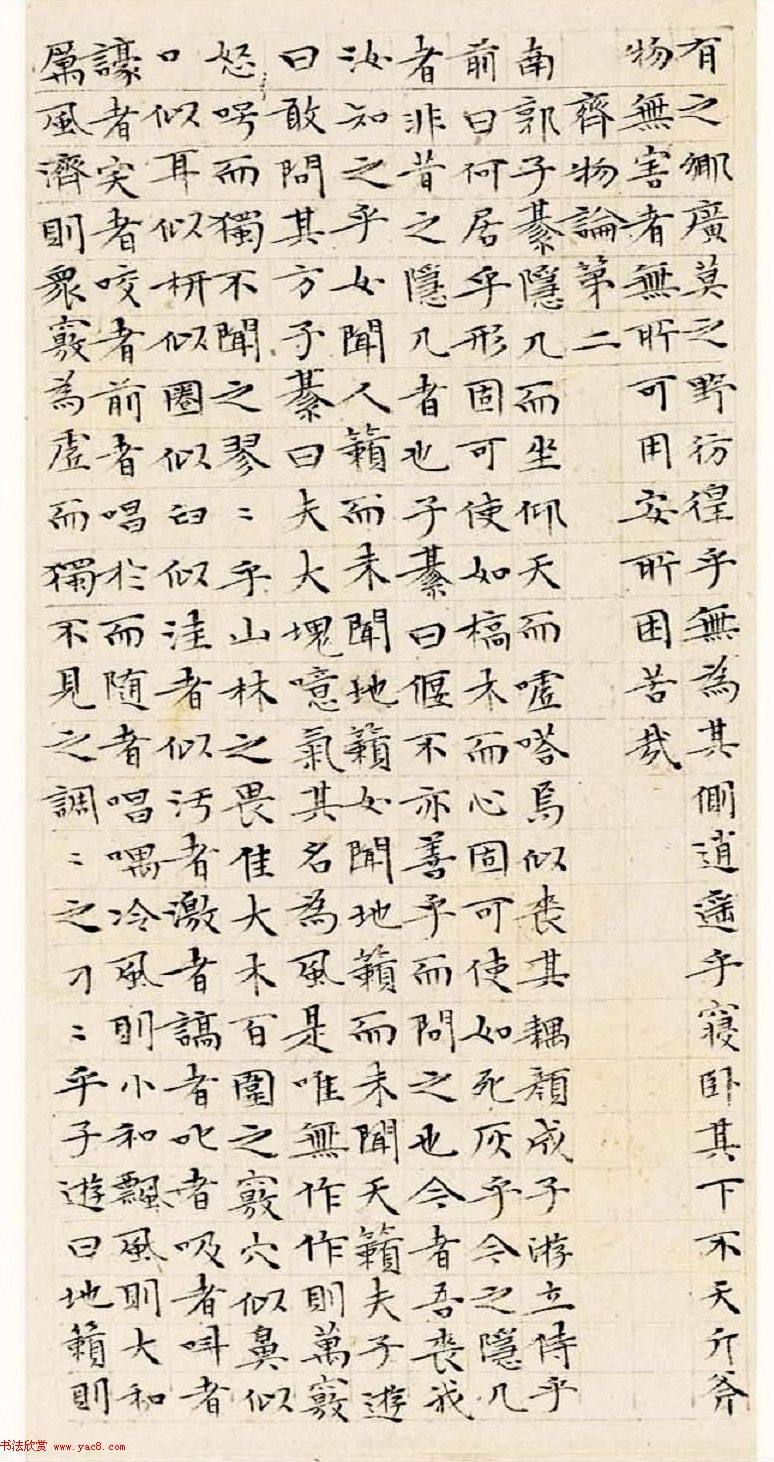 有之鄉廣莫之野彷徨乎無為其側逍遥乎寢卧其下不夭斤斧
物無害者無所可用安所困苦哉
齊物論第二
南郭子綦隱几而坐仰天而嘘嗒焉似喪其耦顔成子游立侍乎
前曰何居乎形固可使如槁木而心固可使如死灰乎今之隱几
者非昔之隱几者也子綦曰偃不亦善乎而問之也今者吾喪我
汝知之乎女聞人籟而未聞地籟女聞地籟而未聞天籟夫子遊
曰敢問其方子綦曰夫大塊噫氣其名為風是唯無作作則萬竅
怒呺而獨不聞之翏〻乎山林之畏佳大木百圍之竅穴似鼻似
口似耳似枅似圈似臼似洼者似污者激者謞者叱者吸者叫者
譹者宎者咬者前者唱於而随者唱喁冷風則小和飄風則大和
厲風濟則衆竅為虛而獨不見之調〻之刁〻乎子遊曰地籟則
书法欣赏 www.yac8.com